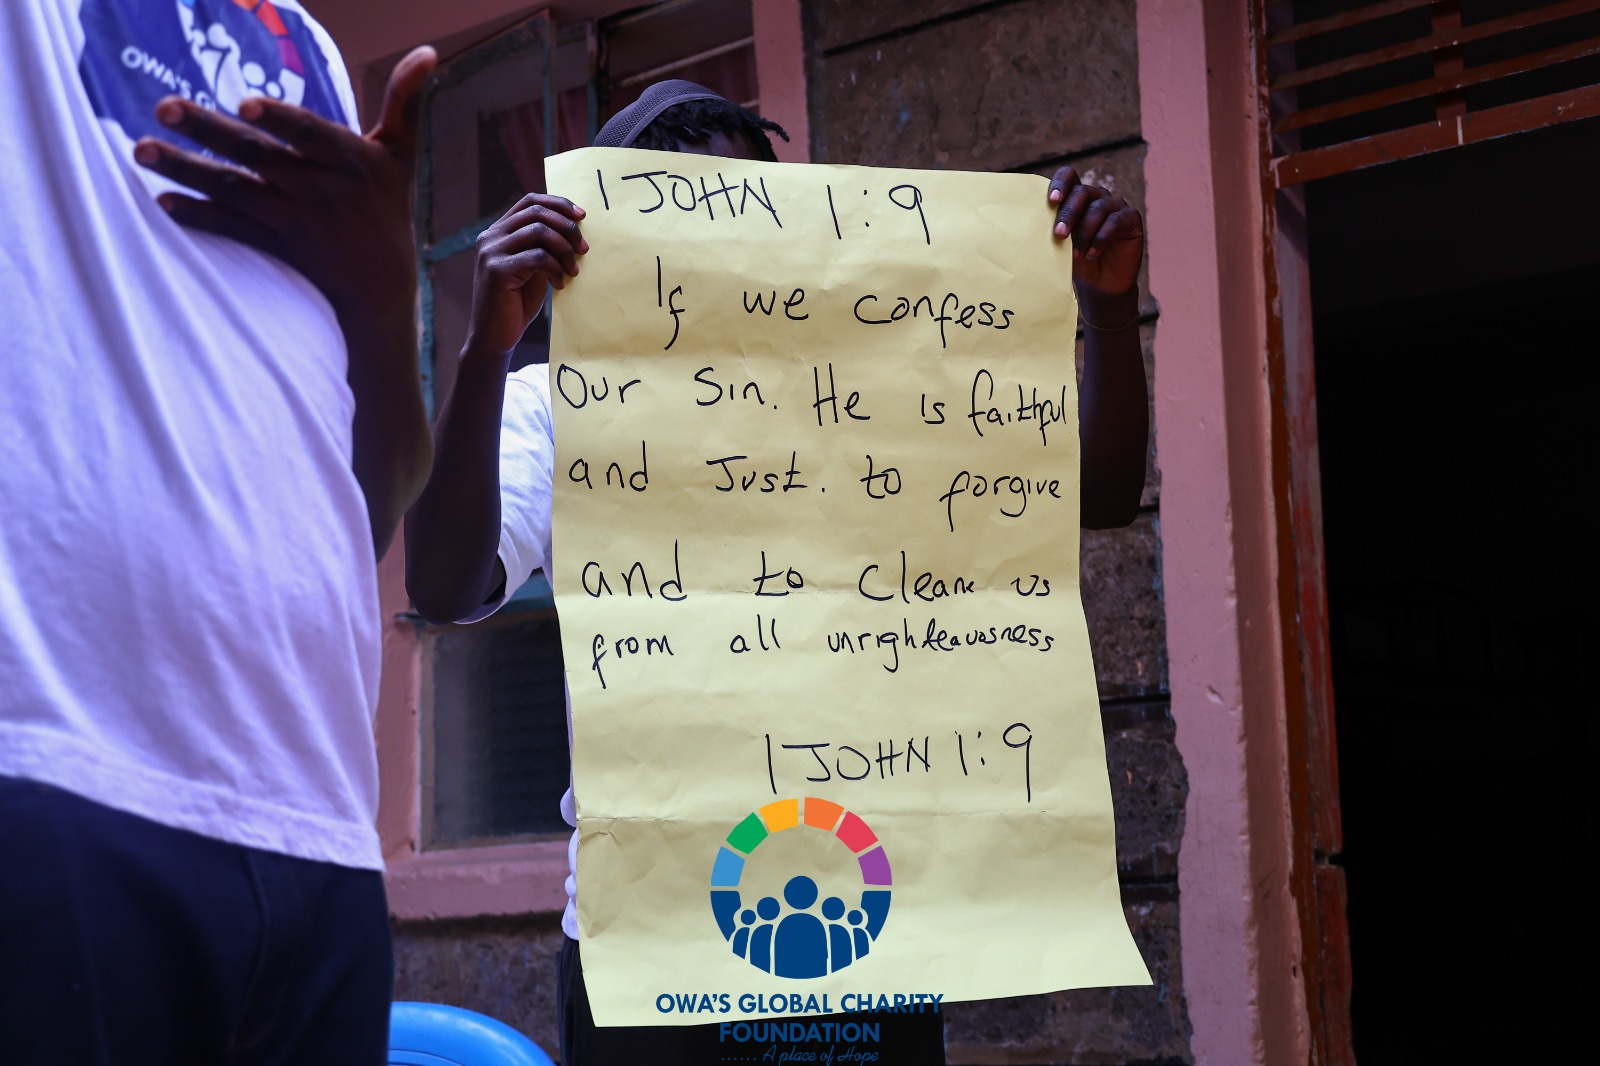 OWA'S GL
1 JOHN 1:9
If we confess
Our Sin. He is faithful
and Just. to forgive
and to Cleanse us
from all unrighteauosness
1 JOHN 1:9
OWA'S GLOBAL CHARITY
FOUNDATION
...... A place of Hope